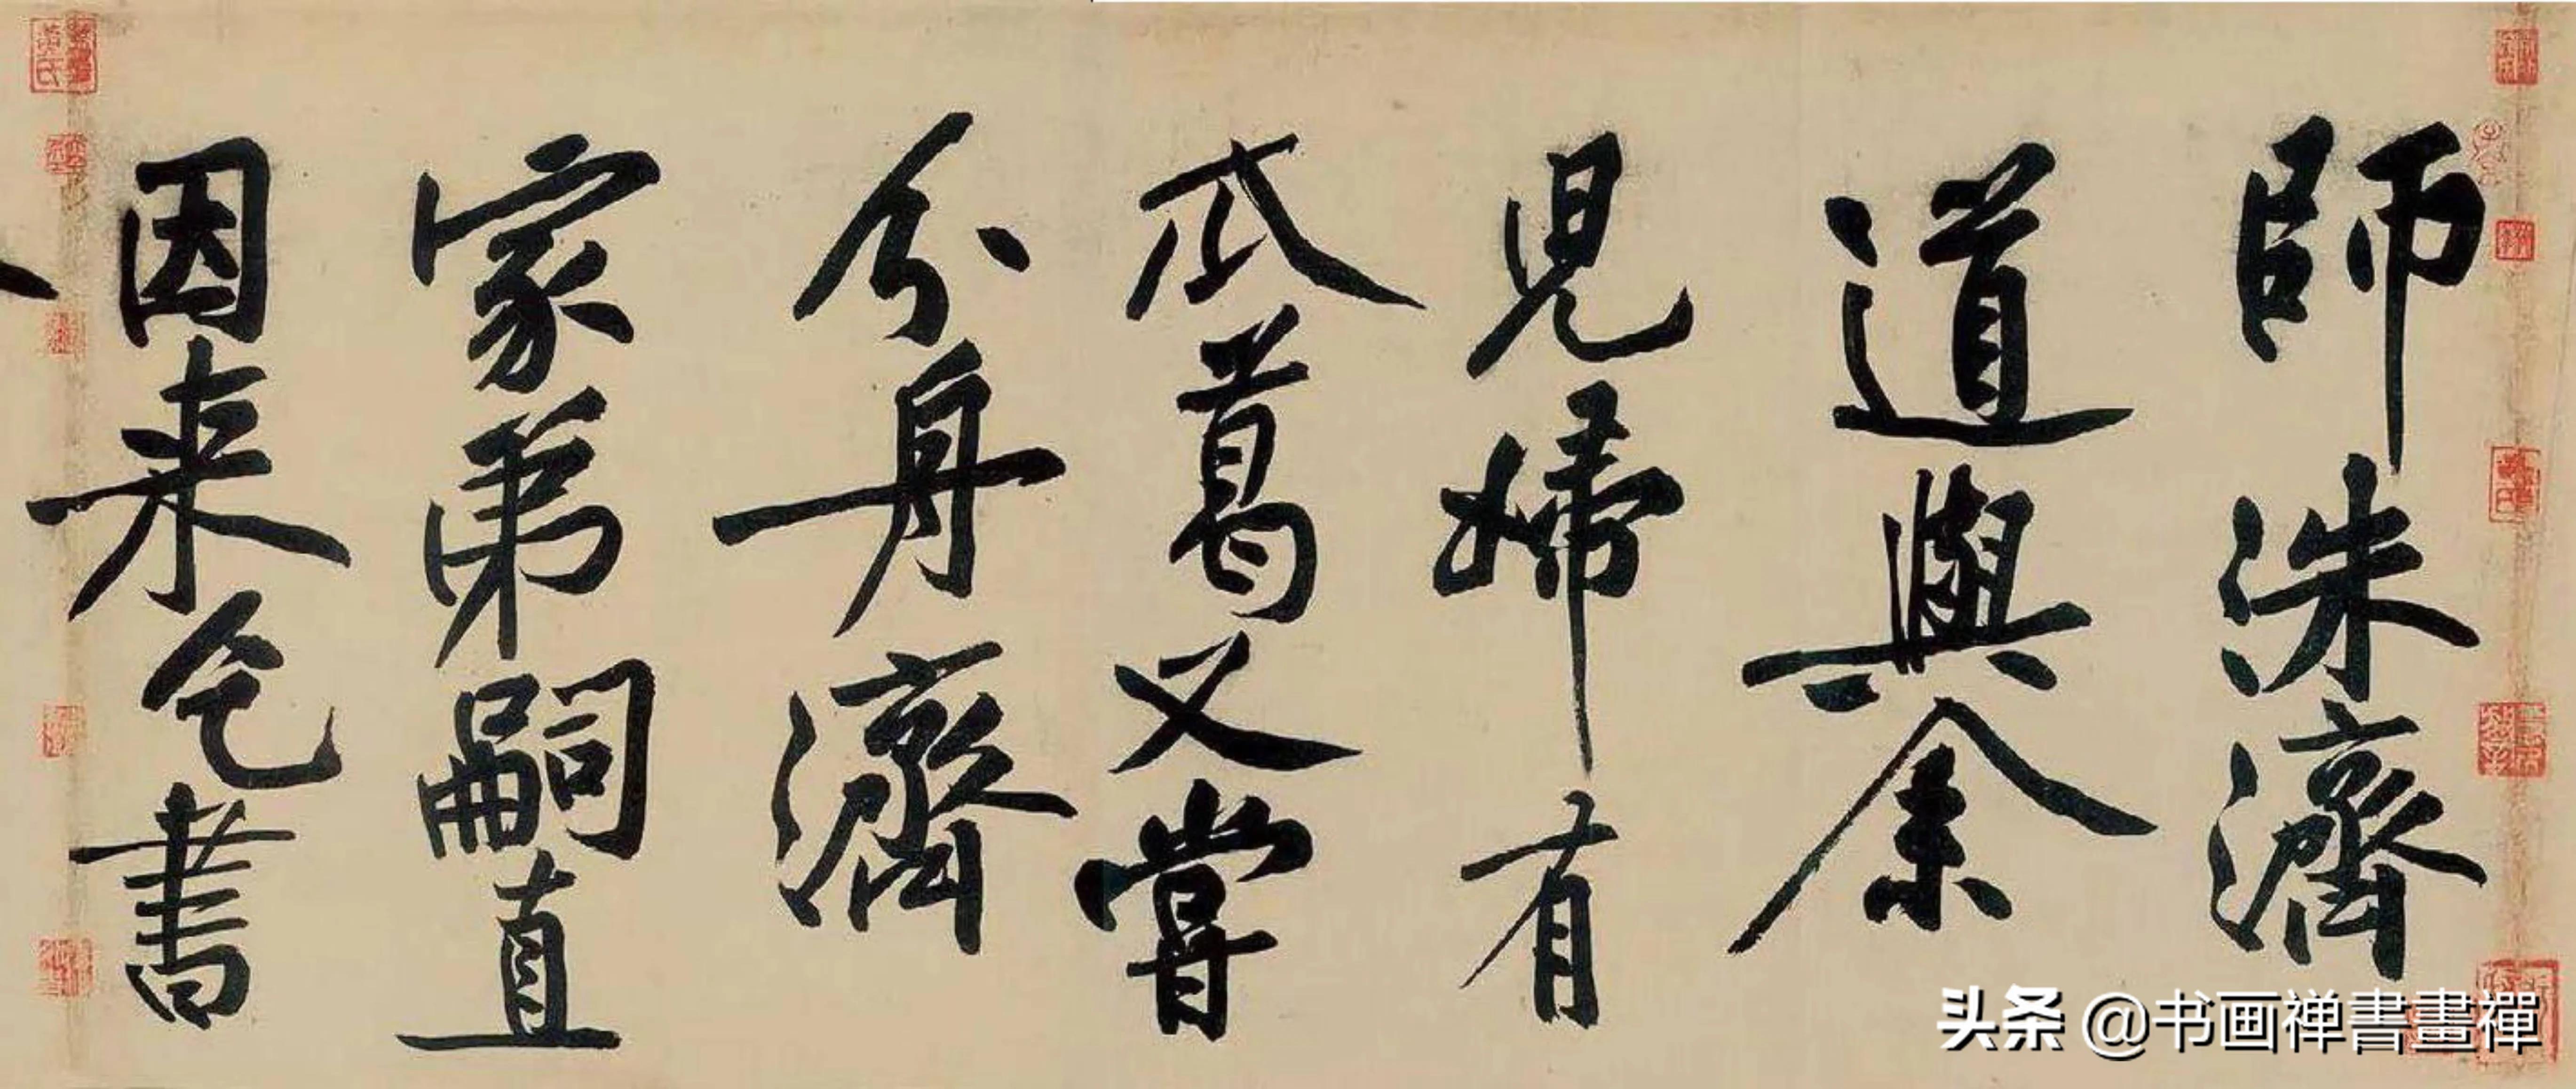 師洙濟
道與余
兒婦有
瓜葛又嘗
分舟濟
家弟嗣直
因来乞書
头条 @书画禅書畫禪